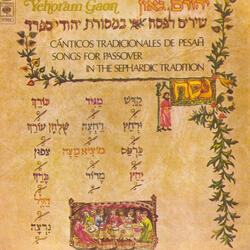 CBS
Yehoram Gaon
יהורם גאון
שירים לפסח במסורת יהודי ספרד
CÁNTICOS TRADICIONALES DE PESAḤ
SONGS FOR PASSOVER
IN THE SEPHARDIC TRADITION
פסח
קדש מגיד כורך
ורחץ רחצה שלחן עורך
כרפס מוציא מצה צפון
יחץ מרור ברך
נרצה